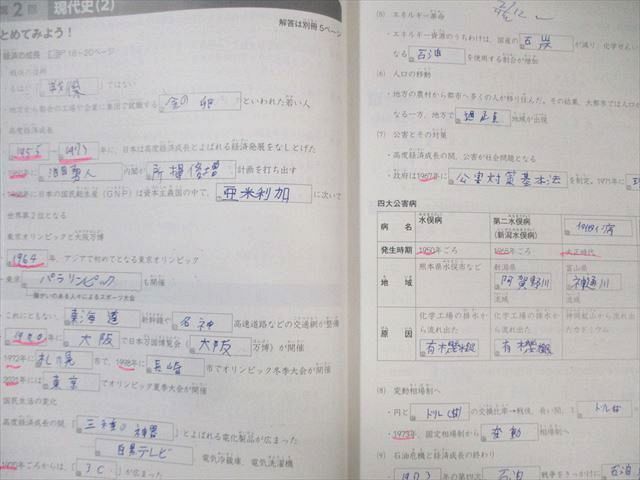 第2回 現代史(2)
解答は別冊5ページ
とめてみよう！
経済の成長 18〜20ページ
ではない
・地方から都会の工場や企業に集団で就職する 金の卵 といわれた若い人
高度経済成長
1955 〜 1973 年に、日本は高度経済成長とよばれる経済発展をなしとげた
勇人 内閣が 所得倍増 計画を打ち出す
年に日本の国民総生産（GNP）は資本主義国の中で、 亜米利加 に次いで
世界第2位となる
東京オリンピックと大阪万博
1964 年、アジアで初めてとなる東京オリンピック
・東京 パラリンピック も開催
障がいのある人々によるスポーツ大会
これにともない、 東海道 新幹線や 名神 高速道路などの交通網が整備
年に 大阪 で日本万国博覧会（ 大阪 万博）が開催
1972年に 札幌 市で、1998年に 長崎 市でオリンピック冬季大会が開催
2021年には 東京 でオリンピック夏季大会が開催
国民生活の変化
高度経済成長の間、 三種の神器 とよばれる電化製品が広まった
白黒テレビ 電気冷蔵庫、電気洗濯機
年ごろからは、 3C が広まった
(5) エネルギー革命
・エネルギー資源のうちわけは、国産の 石炭 が減り、化学せんい
なる 石油 を使用する割合が増加
(6) 人口の移動
・地方の農村から都市へ多くの人が移り住んだ。その結果、大都市では人口
なる一方、地方で 過疎 地域が出現
(7) 公害とその対策
・高度経済成長の間、公害が社会問題となる
・政府は1967年に 公害対策基本法 を制定。1971年に
四大公害病
病名 水俣病 第二水俣病（新潟水俣病） 病
発生時期 1950年ごろ 1965年ごろ 大正時代
地域 熊本県水俣市など 新潟県 阿賀野川 流域 富山県 神通川 流域
原因 化学工場の排水から流れ出た 有機水銀 化学工場の排水から流れ出た 有機水銀 神岡鉱山から流れ出たカドミウム
(8) 変動相場制へ
・円と ドル の交換比率→戦後、長い間、1 ドル
・1973年、固定相場制から 変動 相場制へ
(9) 石油危機と高度経済成長の終わり
1973 年の第四次 石油 戦争をきっかけに 石油